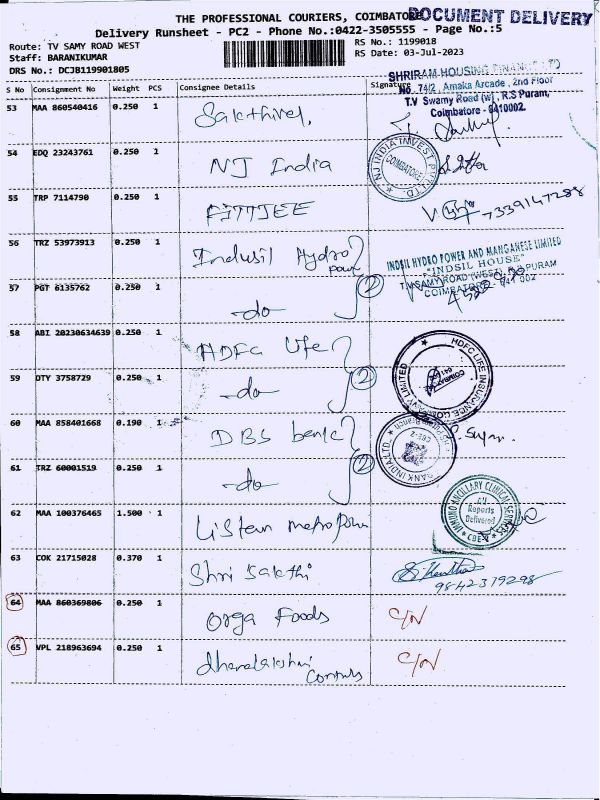 THE PROFESSIONAL COURIERS, COIMBATORE
DOCUMENT DELIVERY
Delivery Runsheet - PC2 - Phone No.:0422-3505555 - Page No.:5
Route: TV SAMY ROAD WEST
RS No.: 1199018
Staff: BARANIKUMAR
RS Date: 03-Jul-2023
DRS No.: DCJB119901805
S No Consignment No Weight PCS Consignee Details Signature
SHRIRAM HOUSING FINANCE LTD
No. 74/2, Amaka Arcade, 2nd Floor
T.V Swamy Road (w), R.S Puram,
Coimbatore - 6410002.
53 MAA 860540416 0.250 1 Sakthivel,
54 EDQ 23243761 0.250 1 NJ India
NJ INDIA INVEST PVT LTD
COIMBATORE
55 TRP 7114790 0.250 1 FITTJEE
7339147288
56 TRZ 53973913 0.250 1 Indusil Hydro
power
INDSIL HYDRO POWER AND MANGANESE LIMITED
"INDSIL HOUSE"
T.V.SAMY ROAD (WEST), R.S.PURAM
COIMBATORE - 641 002
57 PGT 6135762 0.250 1 -do- 2
58 ABI 20230634639 0.250 1 HDFC Life
59 DTY 3758729 0.250 1 -do- 2
HDFC LIFE INSURANCE COMPANY LIMITED
COIMBATORE
60 MAA 858401668 0.190 1 DBS bank
BANK INDIA LTD.
CBE-2
61 TRZ 60001519 0.250 1 -do- 2
62 MAA 100376465 1.500 1 Listen metropolis
IMMUNO ANCILLARY CLINICAL SERVICES
All
Reports
Delivered
63 COK 21715028 0.370 1 Shri Sakthi
9842379298
64 MAA 860369806 0.250 1 Orga Foods C/N
65 VPL 218963694 0.250 1 dhanalakshmi C/N